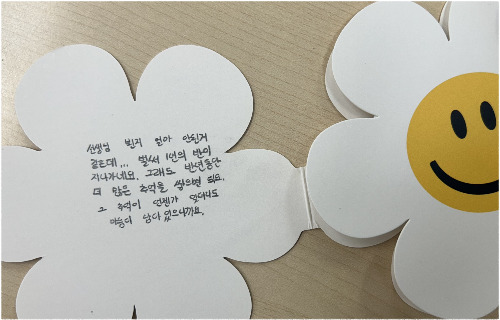 선생님 뵌지 얼마 안된거
같은데,,, 벌써 1년의 반이
지나가네요. 그래도 반년동안
더 많은 추억을 쌓으면 되죠.
그 추억이 언젠가 잊더라도
마음에 남아 있으니까요.